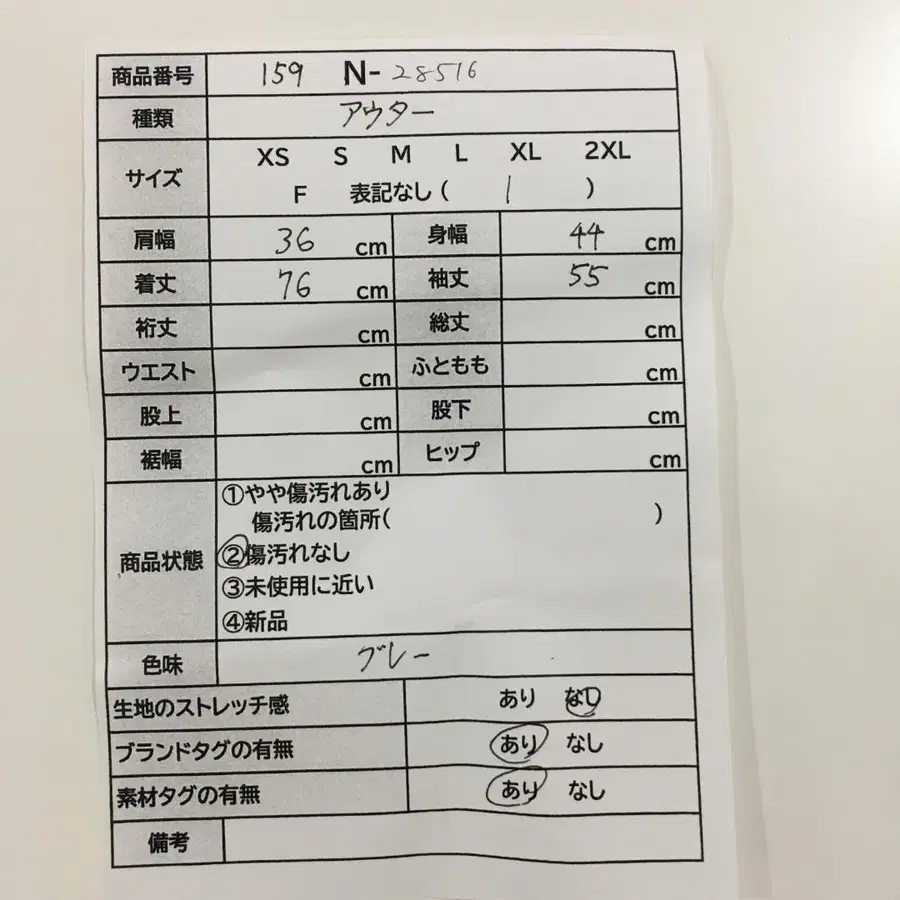 商品番号 159 N-28516
種類 アウター
サイズ XS S M L XL 2XL
F 表記なし( 1 )
肩幅 36 cm 身幅 44 cm
着丈 76 cm 袖丈 55 cm
裄丈 cm 総丈 cm
ウエスト cm ふともも cm
股上 cm 股下 cm
裾幅 cm ヒップ cm
商品状態 ①やや傷汚れあり
傷汚れの箇所( )
②傷汚れなし
③未使用に近い
④新品
色味 グレー
生地のストレッチ感 あり なし
ブランドタグの有無 あり なし
素材タグの有無 あり なし
備考